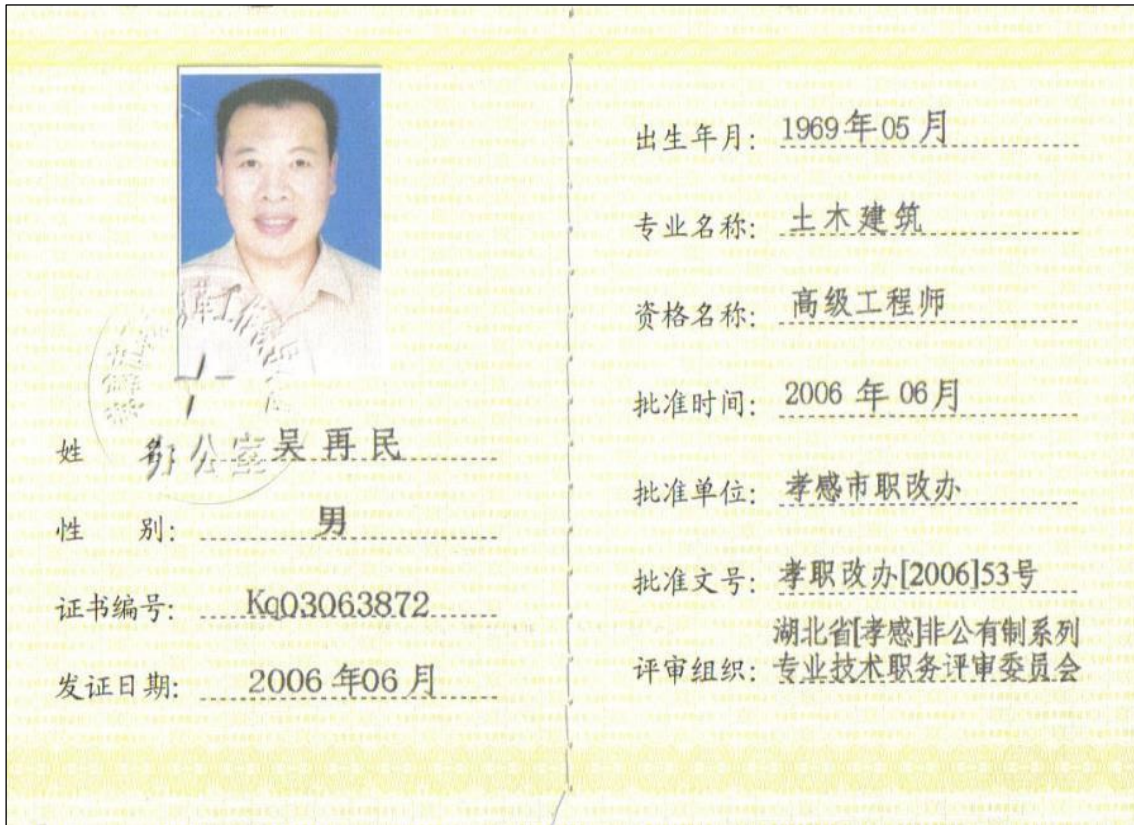 姓 吴再民
性 别: 男
证书编号: Kq03063872
发证日期: 2006年06月
办公室
出生年月: 1969年05月
专业名称: 土木建筑
资格名称: 高级工程师
批准时间: 2006年06月
批准单位: 孝感市职改办
批准文号: 孝职改办[2006]53号
湖北省[孝感]非公有制系列
评审组织: 专业技术职务评审委员会